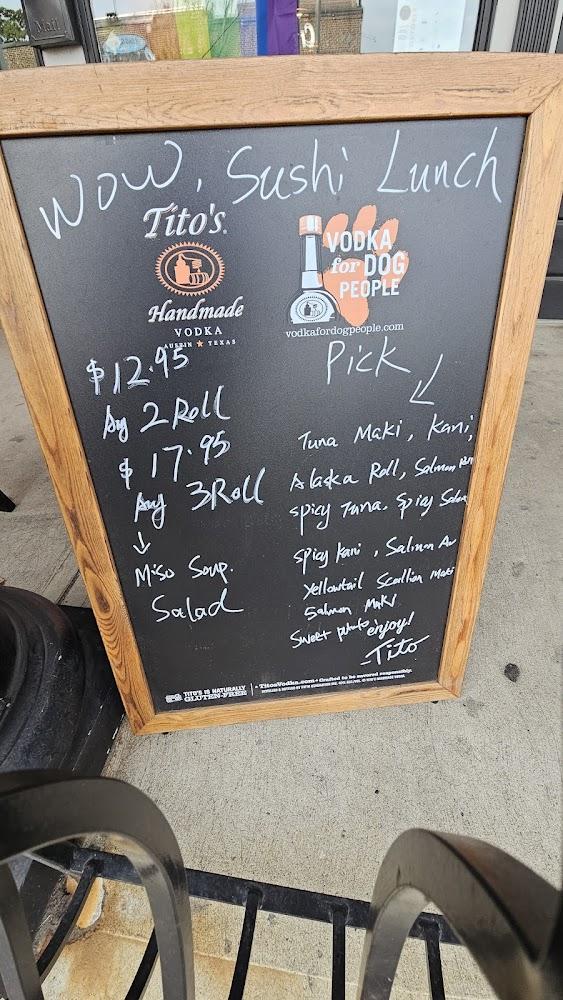 Mail
WOW, Sushi Lunch
Tito's
Handmade
VODKA
AUSTIN ★ TEXAS
VODKA
for DOG
PEOPLE
vodkafordogpeople.com
$12.95
Any 2 Roll
$17.95
Any 3 Roll
↓
Miso Soup.
Salad
Pick
Tuna Maki, Kani,
Alaska Roll, Salmon
Spicy Tuna. Spicy
Spicy Kani, Salmon Av
Yellowtail Scallion Maki
Salmon Maki
Sweet potato enjoy!
-Tito
TITO'S IS NATURALLY
GLUTEN-FREE
TitosVodka.com • Crafted to be savored responsibly.